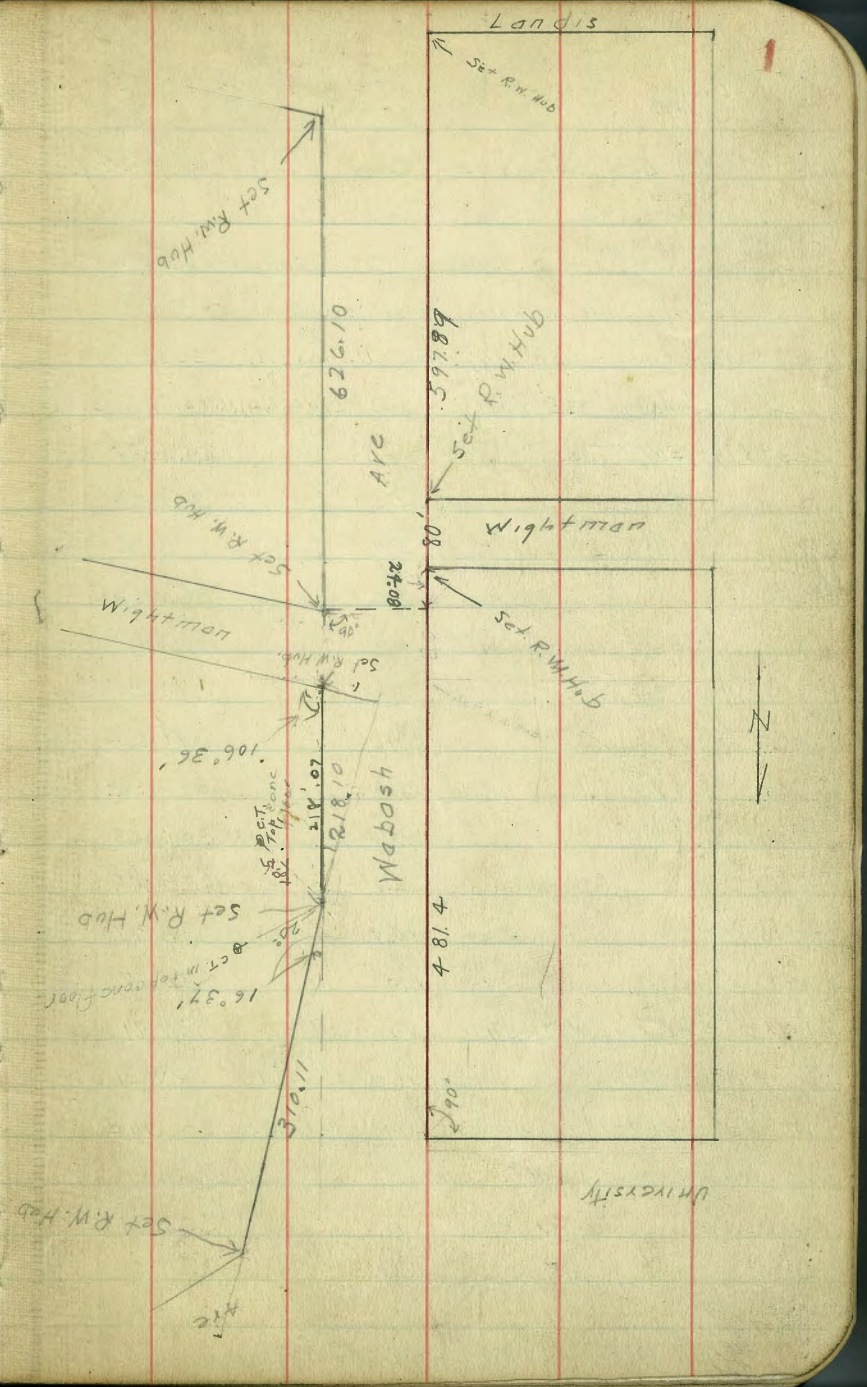 1
Landis
Set R.W. Hub
Set R.W. Hub
626.10
597.89
Set R.W. Hub
Ave
Set R.W. Hub
80'
Wightman
24.08
Wightman
90°
Set R.W. Hub
Set R.W. Hub.
106° 36'
218.07
218.10
Wabash
Set R.W. Hub
20°
C.T. in Top conc Floor
16° 37'
481.4
310.11
90°
University
Set R.W. Hub
Ave
N